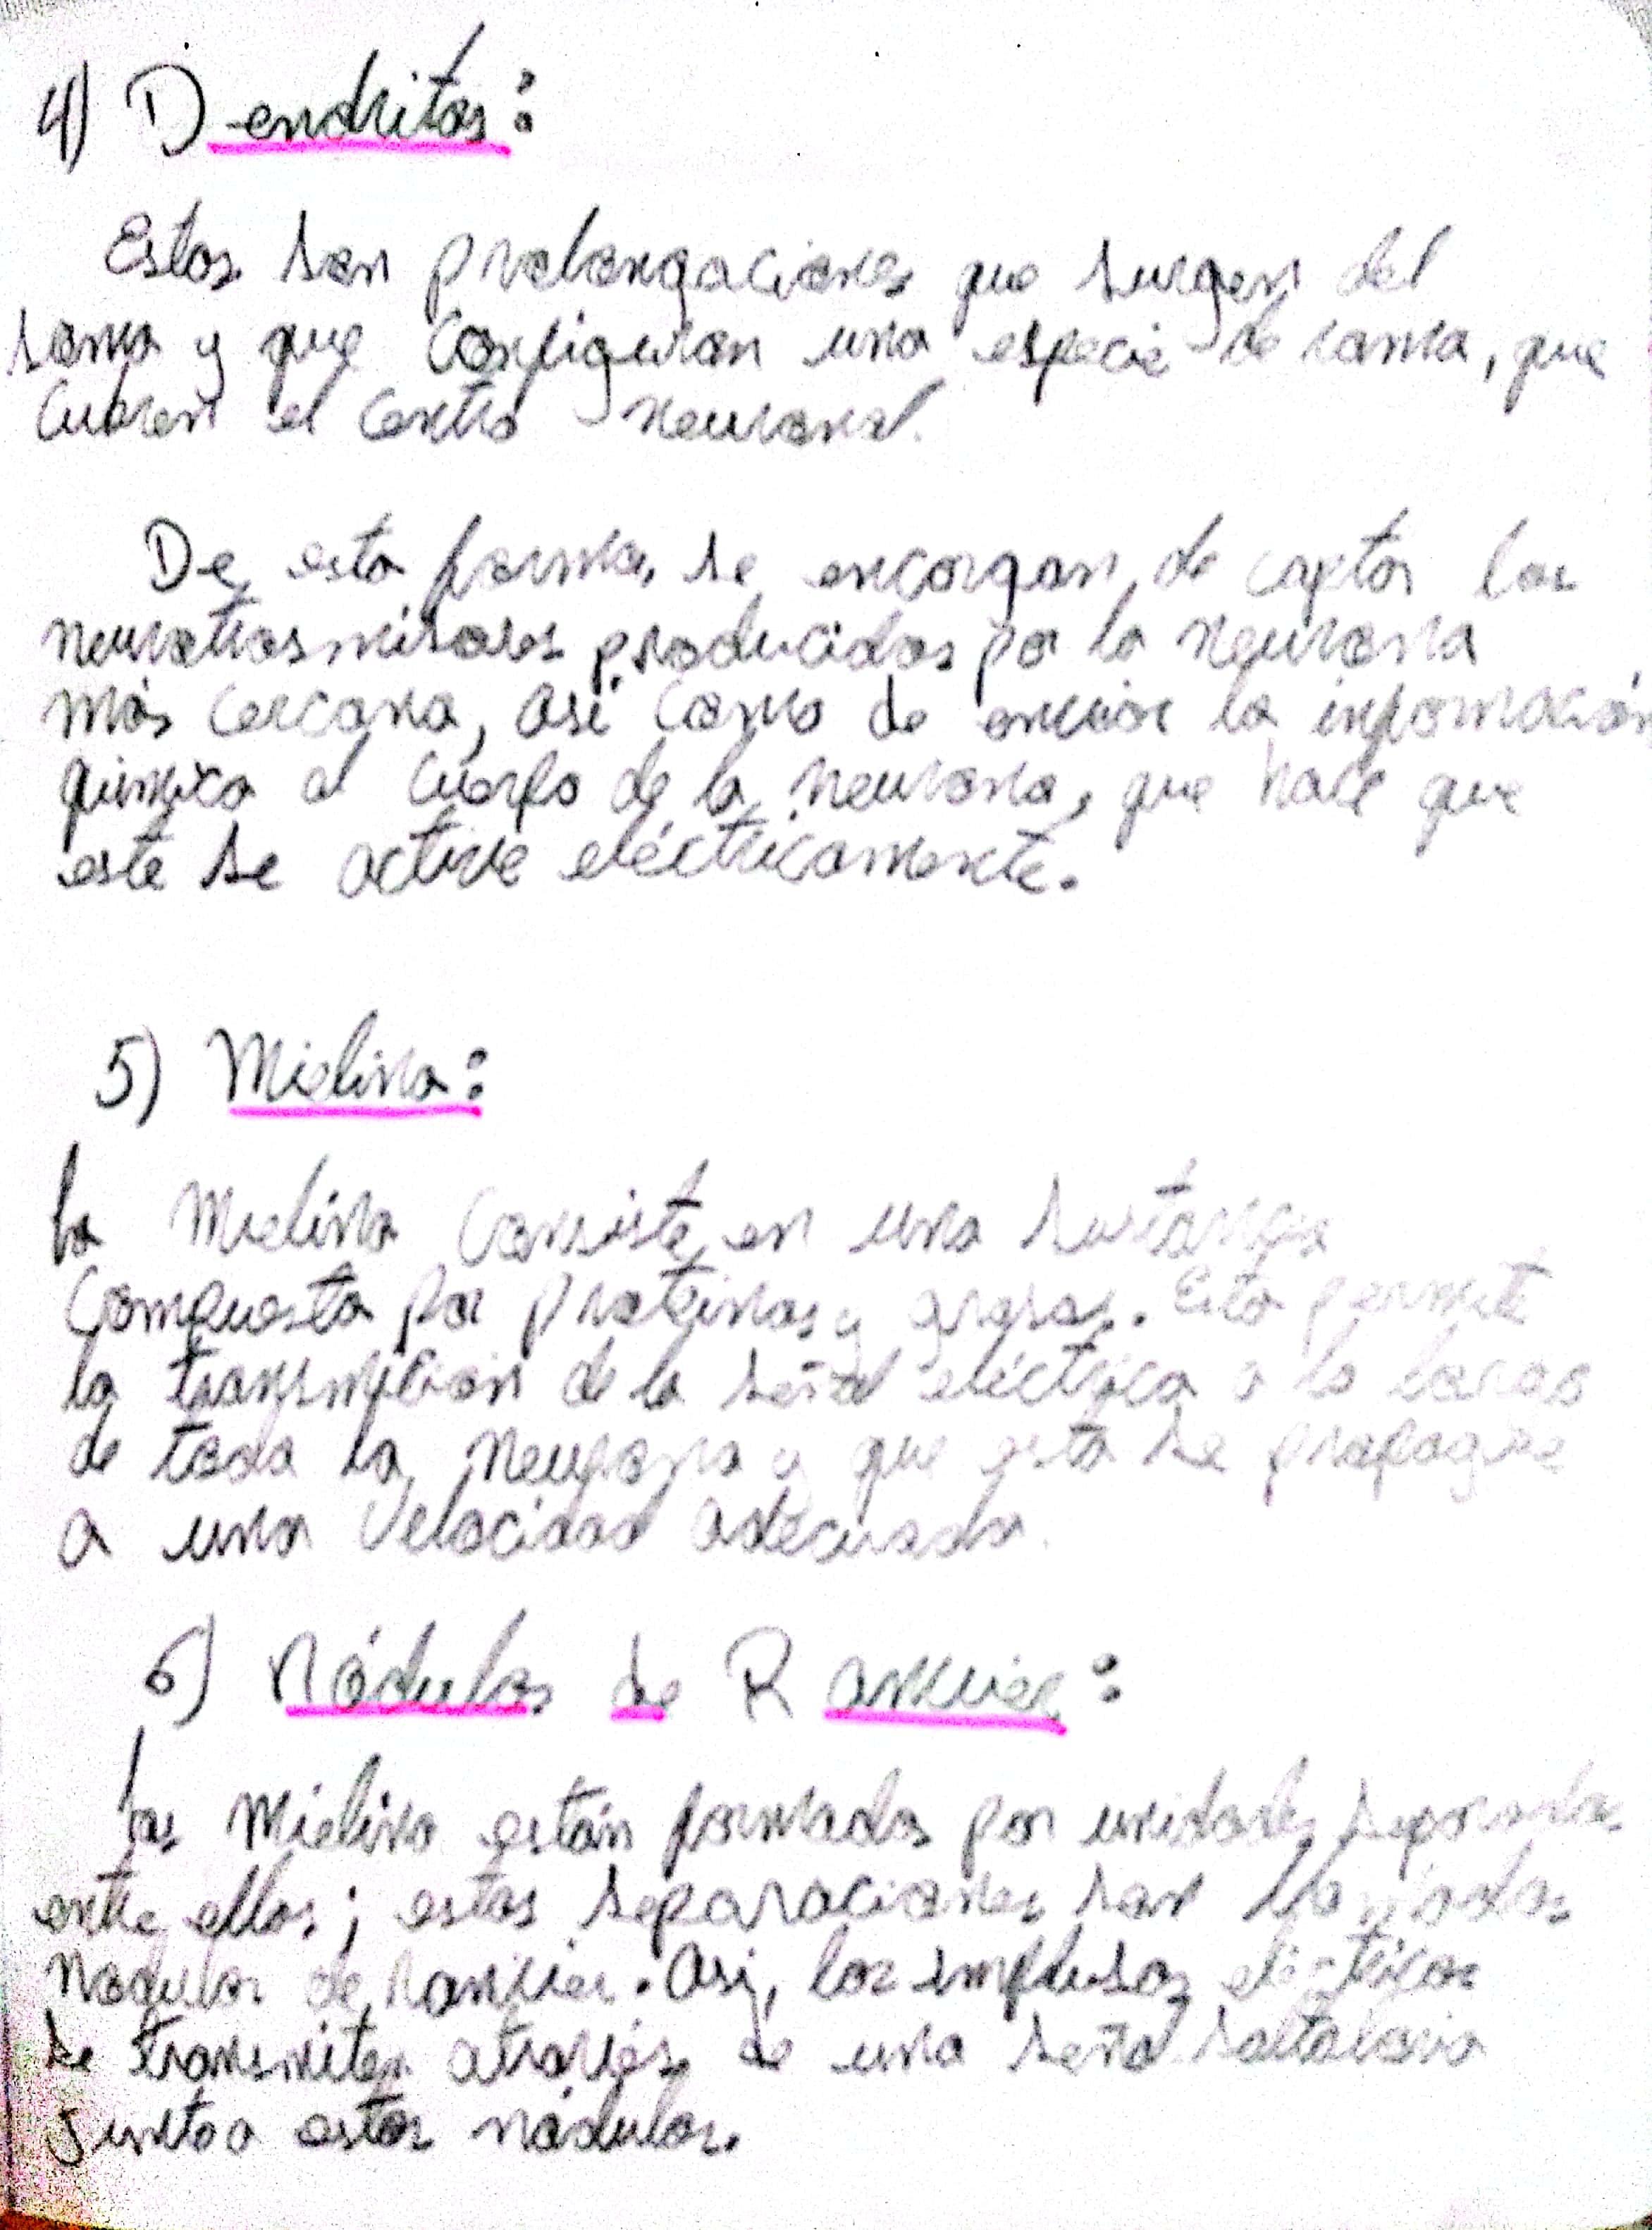 4) Dendritas:
Estas son prolongaciones que surgen del
soma y que configuran una especie de rama, que
cubren el centro neuronal.
De esta forma, se encargan de captar los
neurotrasmisores producidos por la neurona
más cercana, así como de enviar la información
química al cuerpo de la neurona, que hace que
este se active eléctricamente.
5) Mielina:
La Mielina consiste en una sustancia
compuesta por proteínas y grasas. Esta permite
la transmición de la señal eléctrica a lo largo
de toda la neurona y que esta se propague
a una velocidad adecuada.
6) Nódulos de Ranvier:
Las Mielina están formadas por unidades separadas
entre ellas; estas separaciones son llamadas
Nódulos de Ranvier. Así, los impulsos eléctricos
se transmiten através de una señal saltatoria
Junto a estos nódulos.